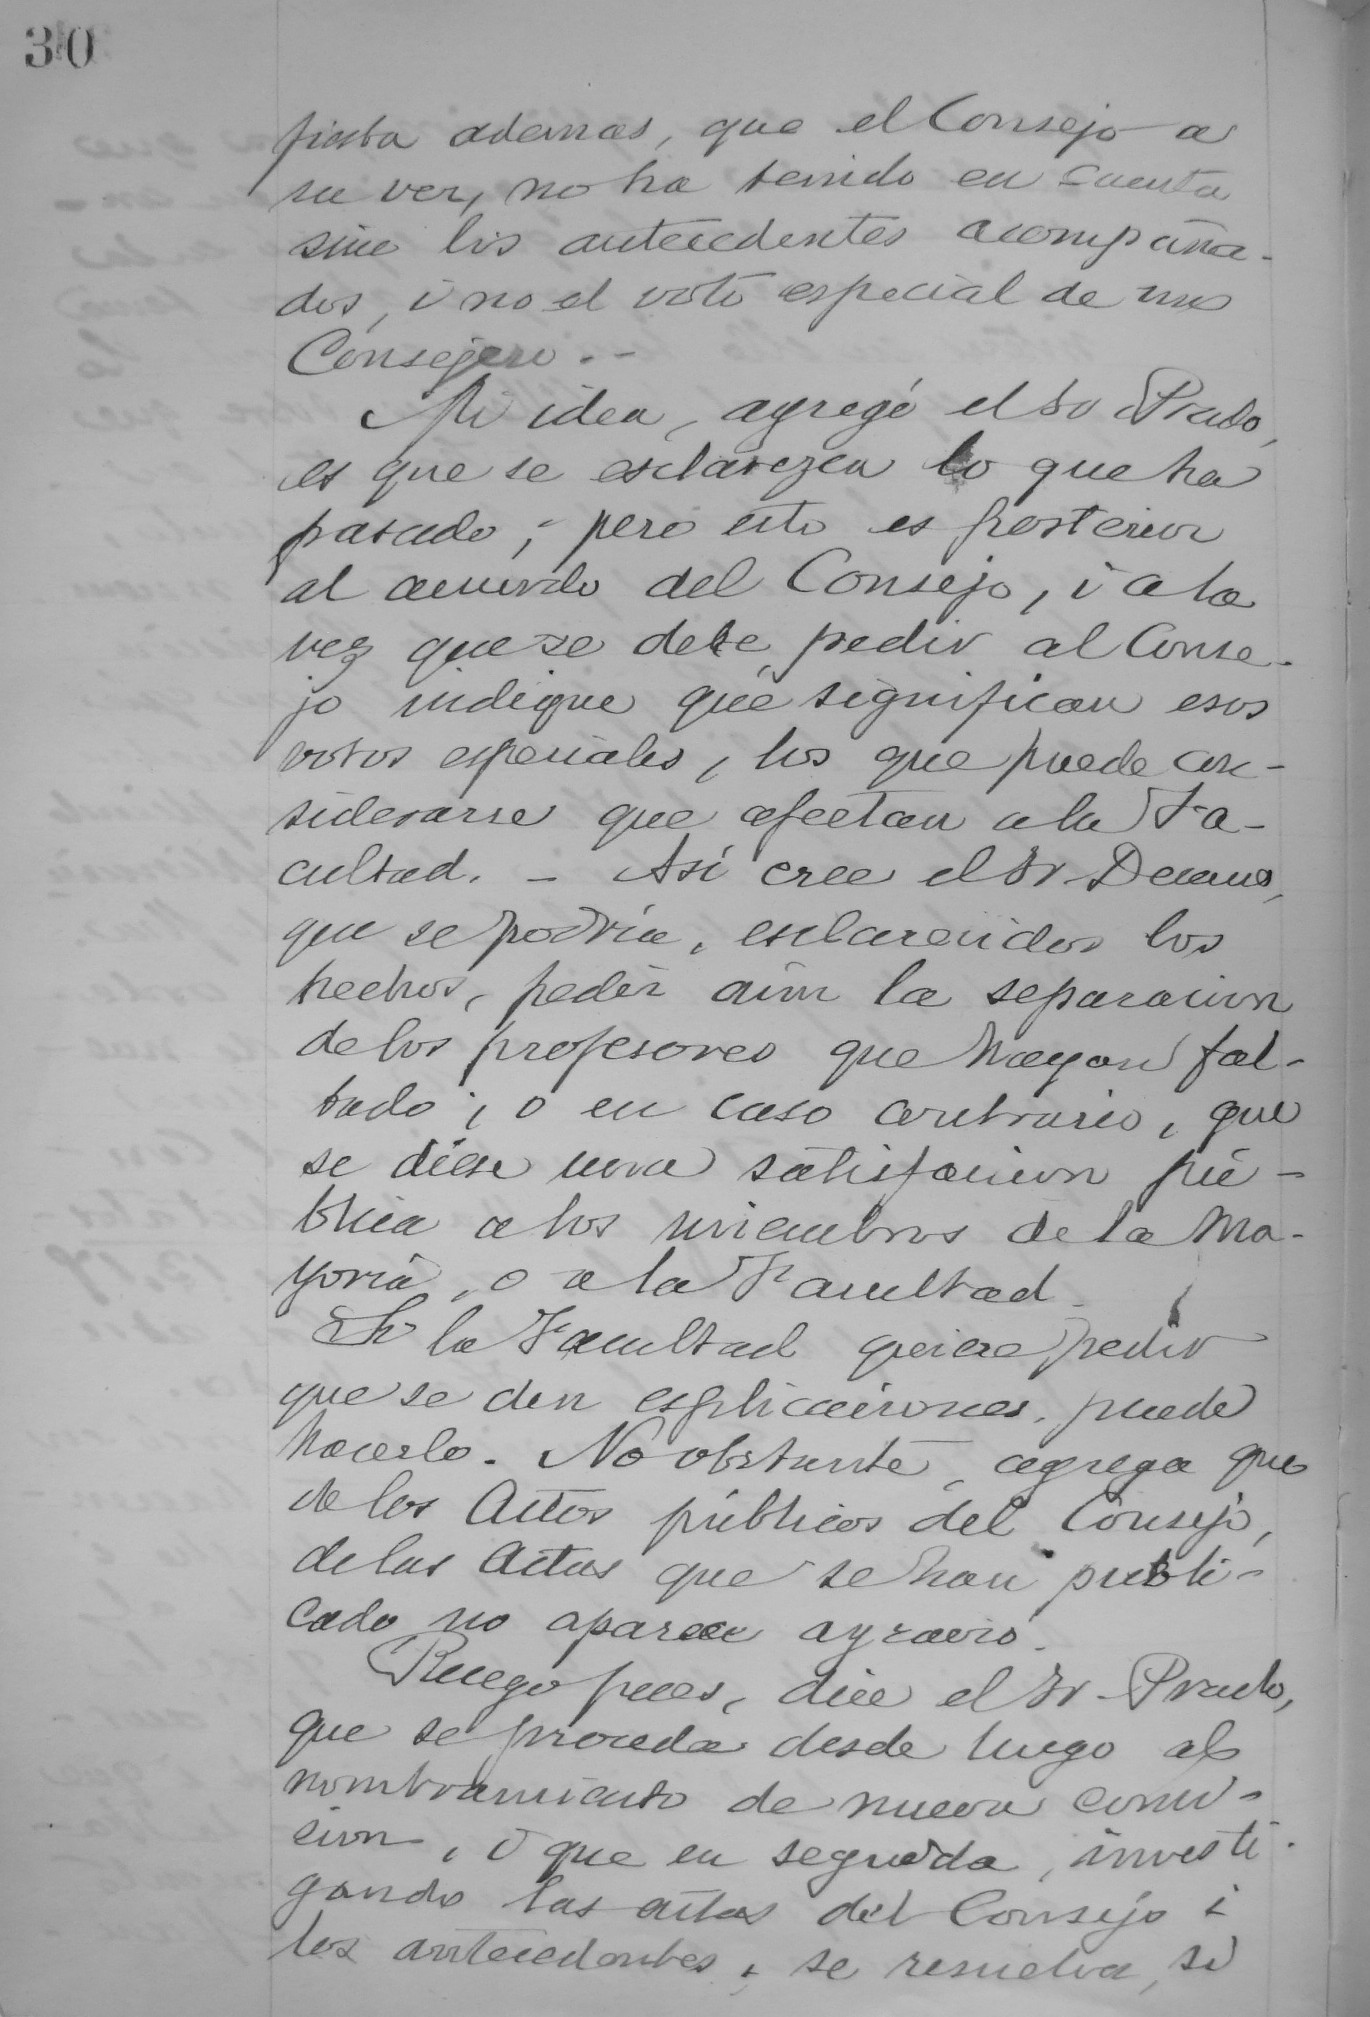 30
fiesta ademas, que el Consejo a
su ver, no ha tenido en cuenta
sino los antecedentes acompaña-
dos, i no el voto especial de un
Consejero. -
Mi idea, agregó el Sr Prado,
es que se esclarezca lo que ha
pasado; pero esto es posterior
al acuerdo del Consejo, i a la
vez que se debe pedir al Conse-
jo indique qué significan esos
votos especiales, los que puede con-
siderarse que afectan a la Fa-
cultad. - Así cree el Sr Decano,
que se podría, esclarecidos los
hechos, pedir aun la separacion
de los profesores que hayan fal-
tado; o en caso contrario, que
se diese una satisfaccion pú-
blica a los miembros de la Ma-
yoría, o a la Facultad.
Si la Facultad quiere pedir
que se den esplicaciones, puede
hacerlo. No obstante, agrega que
de los Actos públicos del Consejo,
de las Actas que se han publi-
cado no aparece agravio.
Ruego pues, dice el Sr Prado,
que se proceda desde luego al
nombramiento de nueva comi-
cion, i que en seguida, investi-
gando las actas del Consejo i
los antecedentes, se resuelva, si